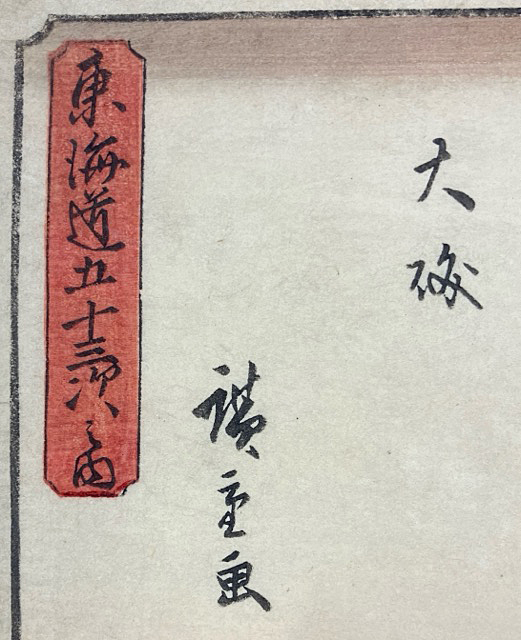 大磯
廣重画
東海道五十三次之内